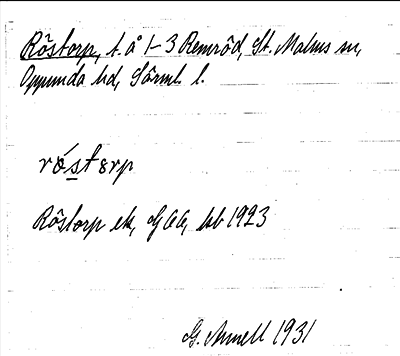 Röstorp, t. å 1-3 Remröd, St. Malms sn,
Oppunda hd, Sörml. l.
röstɘrp
Röstorp ek, GEG, bl 1923
G. Annell 1931